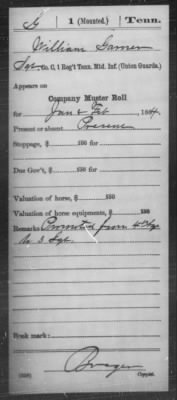 G 1 (Mounted.) Tenn.
William Garner
Sgt., Co. C, 1 Reg't Tenn. Mtd. Inf. (Union Guards.)
Appears on
Company Muster Roll
for Jan & Feb, 1864.
Present or absent Present
Stoppage, $ 100 for
Due Gov't, $ 100 for
Valuation of horse, $ 100
Valuation of horse equipments, $ 100
Remarks: Promoted from 4 Sgt
to 3 Sgt.
Book mark:
(358) Copyist.